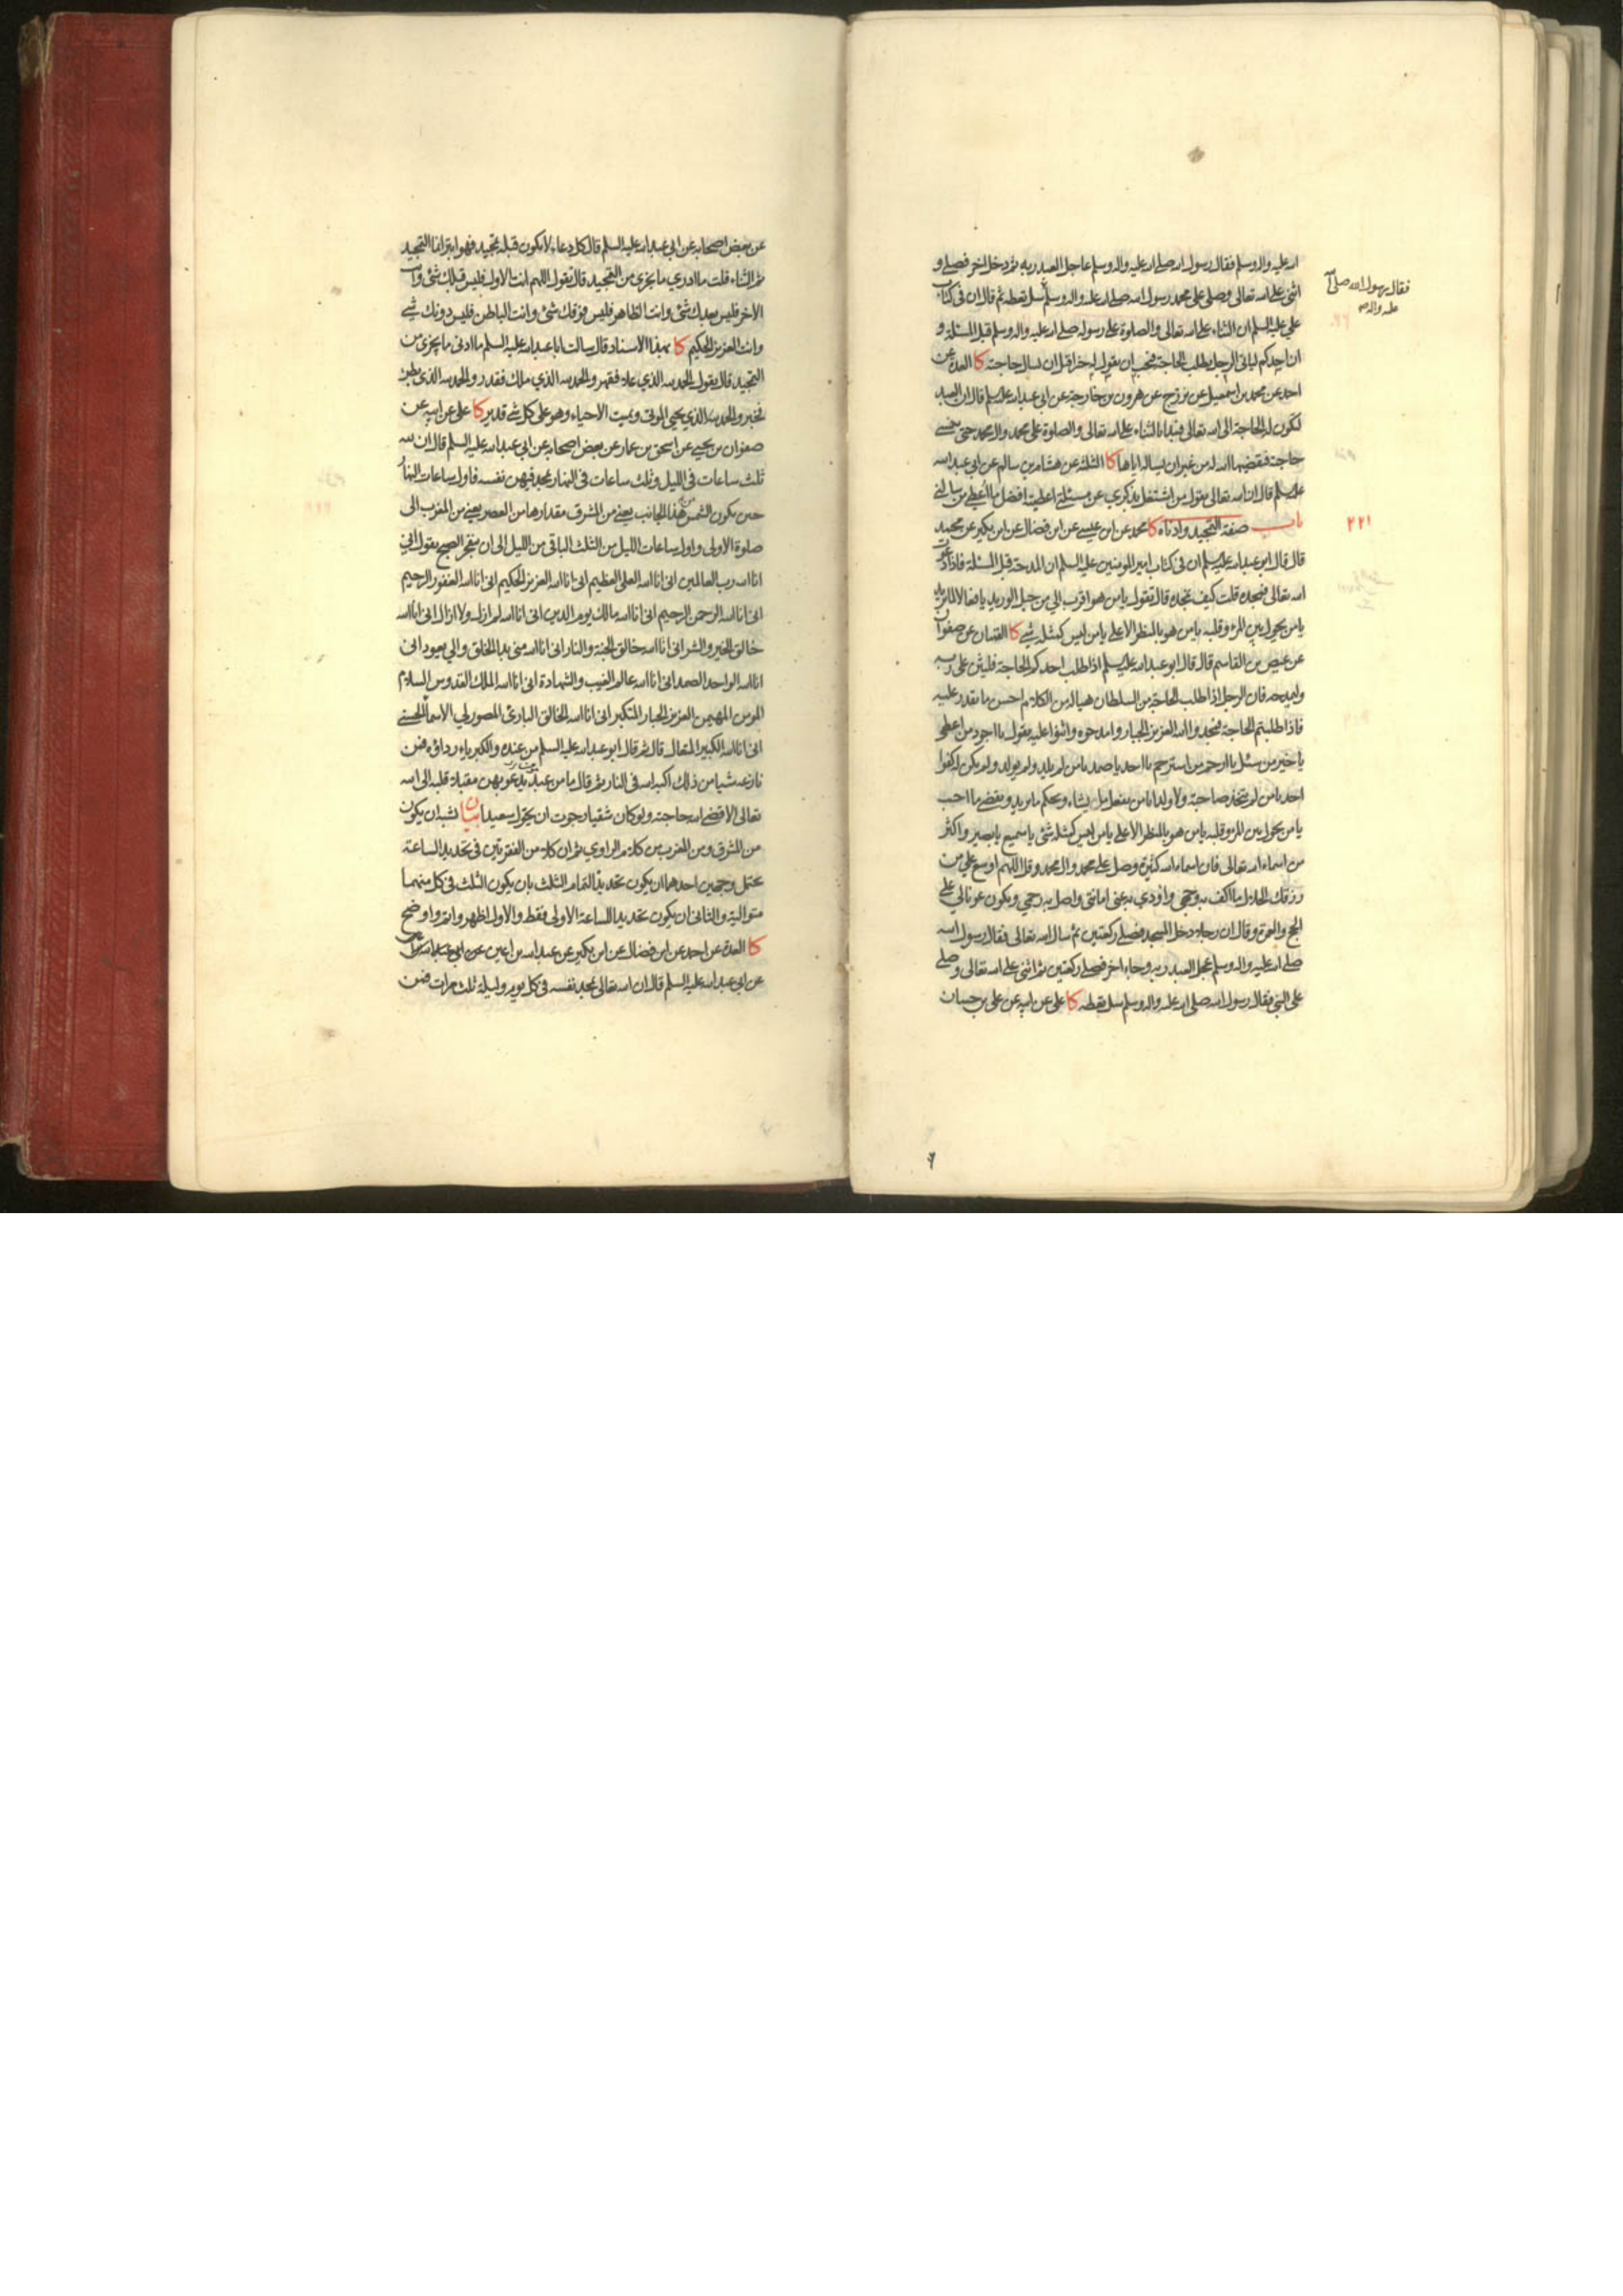 الله عليه واله وسلم فقال رسول الله صلى الله عليه واله وسلم عاجل العبد ربه ثم دخل اخر فصلى و
اثنى على الله تعالى وصلى على محمد رسول الله صلى الله عليه واله وسلم سل تعطه ثم قال ان في كتاب
فقال رسول الله صلى الله
عليه واله
علي عليه السلم ان الثناء على الله تعالى والصلوة على رسوله صلى الله عليه واله وسلم قبل المسئلة و
ان احدكم لياتي الرجل يطلب الحاجة فيحب ان يقول له خيرا قبل ان يسال حاجته كا العدة عن
احمد عن محمد بن اسمعيل عن بزرج عن هرون بن خارجة عن ابي عبد الله عليه السلم قال ان العبد
لتكون له الحاجة الى الله تعالى فيبدا بالثناء على الله تعالى والصلوة على محمد وال محمد حتى ينسى
حاجته فيقضيها الله له من غير ان يساله اياها كا الثلثة عن هشام بن سالم عن ابي عبد الله
عليه السلم قال ان الله تعالى يقول من اشتغل بذكري عن مسئلتي اعطيته افضل ما اعطي من سالني
٢٢١
باب صفة التمجيد وادناه كا محمد عن ابن عيسى عن ابن فضال عن ابن بكير عن محمد
قال قال ابو عبد الله عليه السلم ان في كتاب امير المومنين عليه السلم ان المدحة قبل المسئلة فاذا دعوت
الله تعالى فمجده قلت كيف نمجده قال تقول يا من هو اقرب الي من حبل الوريد يا فعالا لما يريد
يا من يحول بين المرء وقلبه يا من هو بالمنظر الاعلى يا من ليس كمثله شي كا القميان عن صفوان
عن عيص بن القاسم قال قال ابو عبد الله عليه السلم اذا طلب احدكم الحاجة فليثن على ربه
وليمدحه فان الرجل اذا طلب الحاجة من السلطان هيا له من الكلام احسن ما يقدر عليه
فاذا طلبتم الحاجة فمجدوا الله العزيز الجبار وامدحوه واثنوا عليه يقول يا اجود من اعطى
يا خير من سئل يا ارحم من استرحم يا احد يا صمد يا من لم يلد ولم يولد ولم يكن له كفوا
احد يا من لم يتخذ صاحبة ولا ولدا يا من يفعل ما يشاء ويحكم ما يريد ويقضي ما احب
يا من يحول بين المرء وقلبه يا من هو بالمنظر الاعلى يا من ليس كمثله شئ يا سميع يا بصير واكثر
من اسماء الله تعالى فان اسماء الله كثيرة وصل على محمد وال محمد وقل اللهم اوسع علي من
رزقك الحلال ما اكف به وجهي واؤدي به عني امانتي واصل به رحمي ويكون عونا لي على
الحج والعمرة وقال ان رجلا دخل المسجد فصلى ركعتين ثم سال الله تعالى فقال رسول الله
صلى الله عليه واله وسلم عجل العبد ربه وجاء اخر فصلى ركعتين ثم اثنى على الله تعالى وصلى
على النبي فقال رسول الله صلى الله عليه واله وسلم سل تعطه كا علي عن ابيه عن علي بن حسان
عن بعض اصحابه عن ابي عبد الله عليه السلم قال كل دعاء لا يكون قبله تمجيد فهو ابتر انما التمجيد
ثم الثناء قلت ما ادري ما يجزي من التمجيد قال تقول اللهم انت الاول فليس قبلك شئ وانت
الاخر فليس بعدك شئ وانت الظاهر فليس فوقك شئ وانت الباطن فليس دونك شي
وانت العزيز الحكيم كا بهذا الاسناد قال سالت ابا عبد الله عليه السلم ما ادنى ما يجزي من
التمجيد قال يقول الحمد لله الذي علا فقهر والحمد لله الذي ملك فقدر والحمد لله الذي بطن
فخبر والحمد لله الذي يحيي الموتى ويميت الاحياء وهو على كل شي قدير كا علي عن ابيه عن
صفوان بن يحيى عن اسحق بن عمار عن بعض اصحابه عن ابي عبد الله عليه السلم قال ان لله
ثلث ساعات في الليل وثلث ساعات في النهار يمجد فيهن نفسه فاول ساعات النهار
حين يكون الشمس من هذا الجانب يعني من المشرق مقدارها من العصر يعني من المغرب الى
صلوة الاولى واول ساعات الليل من الثلث الباقي من الليل الى ان ينفجر الصبح يقول اني
انا الله رب العالمين اني انا الله العلي العظيم اني انا الله العزيز الحكيم اني انا الله الغفور الرحيم
اني انا الله الرحمن الرحيم اني انا الله مالك يوم الدين اني انا الله لم ازل ولا ازال اني انا الله
خالق الخير والشر اني انا الله خالق الجنة والنار اني انا الله مني بدا الخلق والي يعود اني
انا الله الواحد الصمد اني انا الله عالم الغيب والشهادة اني انا الله الملك القدوس السلام
المومن المهيمن العزيز الجبار المتكبر اني انا الله الخالق البارئ المصور لي الاسماء الحسنى
اني انا الله الكبير المتعال قال ثم قال ابو عبد الله عليه السلم من عنده والكبرياء رداؤه فمن
نازعه شيا من ذلك اكبه الله في النار ثم قال ما من عبد يدعو بهن مقبلا قلبه الى الله
تعالى الا قضى الله حاجته ولو كان شقيا رجوت ان يحول سعيدا بيان لشبه ان يكون
من المشرق ومن المغرب من كلام الراوي ثم ان كلا من الفقرتين في تحديد الساعة
يحتمل وجهين احدهما ان يكون تحديدا لتمام الثلث بان يكون الثلث في كل منهما
متوالية والثاني ان يكون تحديدا للساعة الاولى فقط والاول اظهر واتم واوضح
كا العدة عن احمد عن ابن فضال عن ابن بكير عن عبد الله بن اعين عن ابي عبد الله
عن ابي عبد الله عليه السلم قال ان الله تعالى يمجد نفسه في كل يوم وليلة ثلث مرات فمن